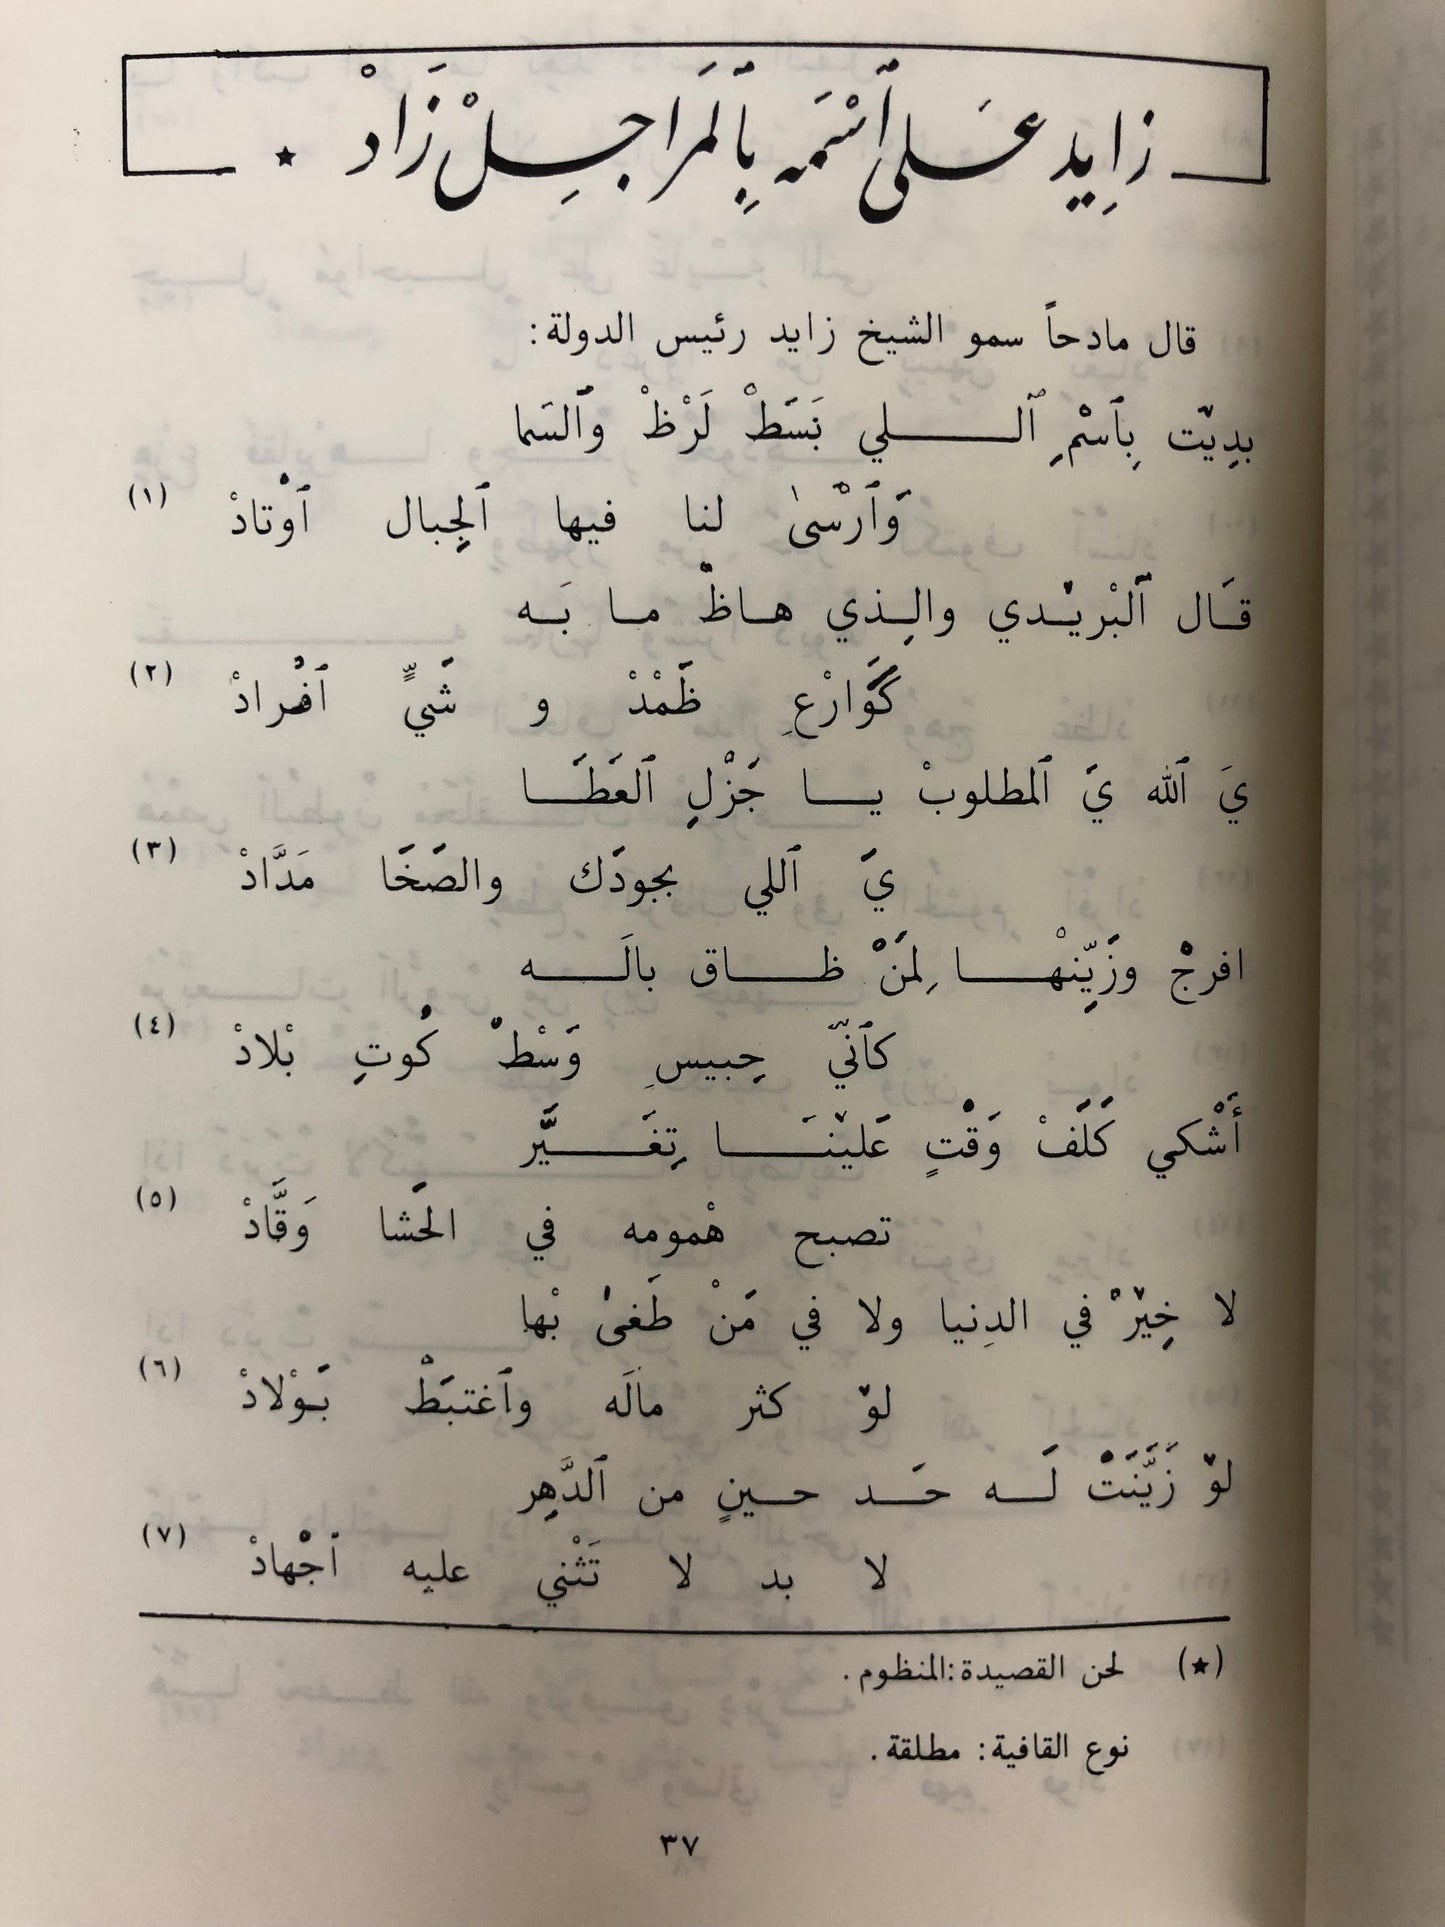 زَايِد عَلى ٱسْمَه بِٱلمَراجِلْ زَادْ ★
قال مادحاً سمو الشيخ زايد رئيس الدولة:
بدِيّت بِٱسْمِ ٱللي بَسَطْ لَرْظْ وٱلسَما
وَٱرْسىٰ لنا فيها ٱلجِبال ٱوْتادْ (١)
قَال ٱلبْريْدي والِذي هاظْ ما بَه
كَوَارْعِ ظَمْدْ و شَيٍّ ٱفْرادْ (٢)
يَ ٱلله يَ ٱلمطلوبْ يا جَزْلِ ٱلعَطَا
يَ ٱللي بجودَك والصَخَا مَدَّادْ (٣)
افرجْ وزَيِّنْها لِمَنْ ظاق بالَه
كٱنّي حِبيسِ وَسْطْ كُوتِ بْلادْ (٤)
أشْكي كَلَفْ وَقْتٍ عَلينَا تِغَيَّر
تصبح هْمومه في الحَشا وَقَّادْ (٥)
لا خِيْرْ في الدِنيا ولا في مَنْ طَغىٰ بْها
لوْ كثر مالَه وٱغتبَطْ بَوْلادْ (٦)
لوْ زَيَّنَتْ لَه حَد حينٍ من ٱلدَّهِر
لا بد لا تَثْني عليه ٱجْهادْ (٧)
(★) لحن القصيدة:المنظوم.
نوع القافية: مطلقة.
٣٧